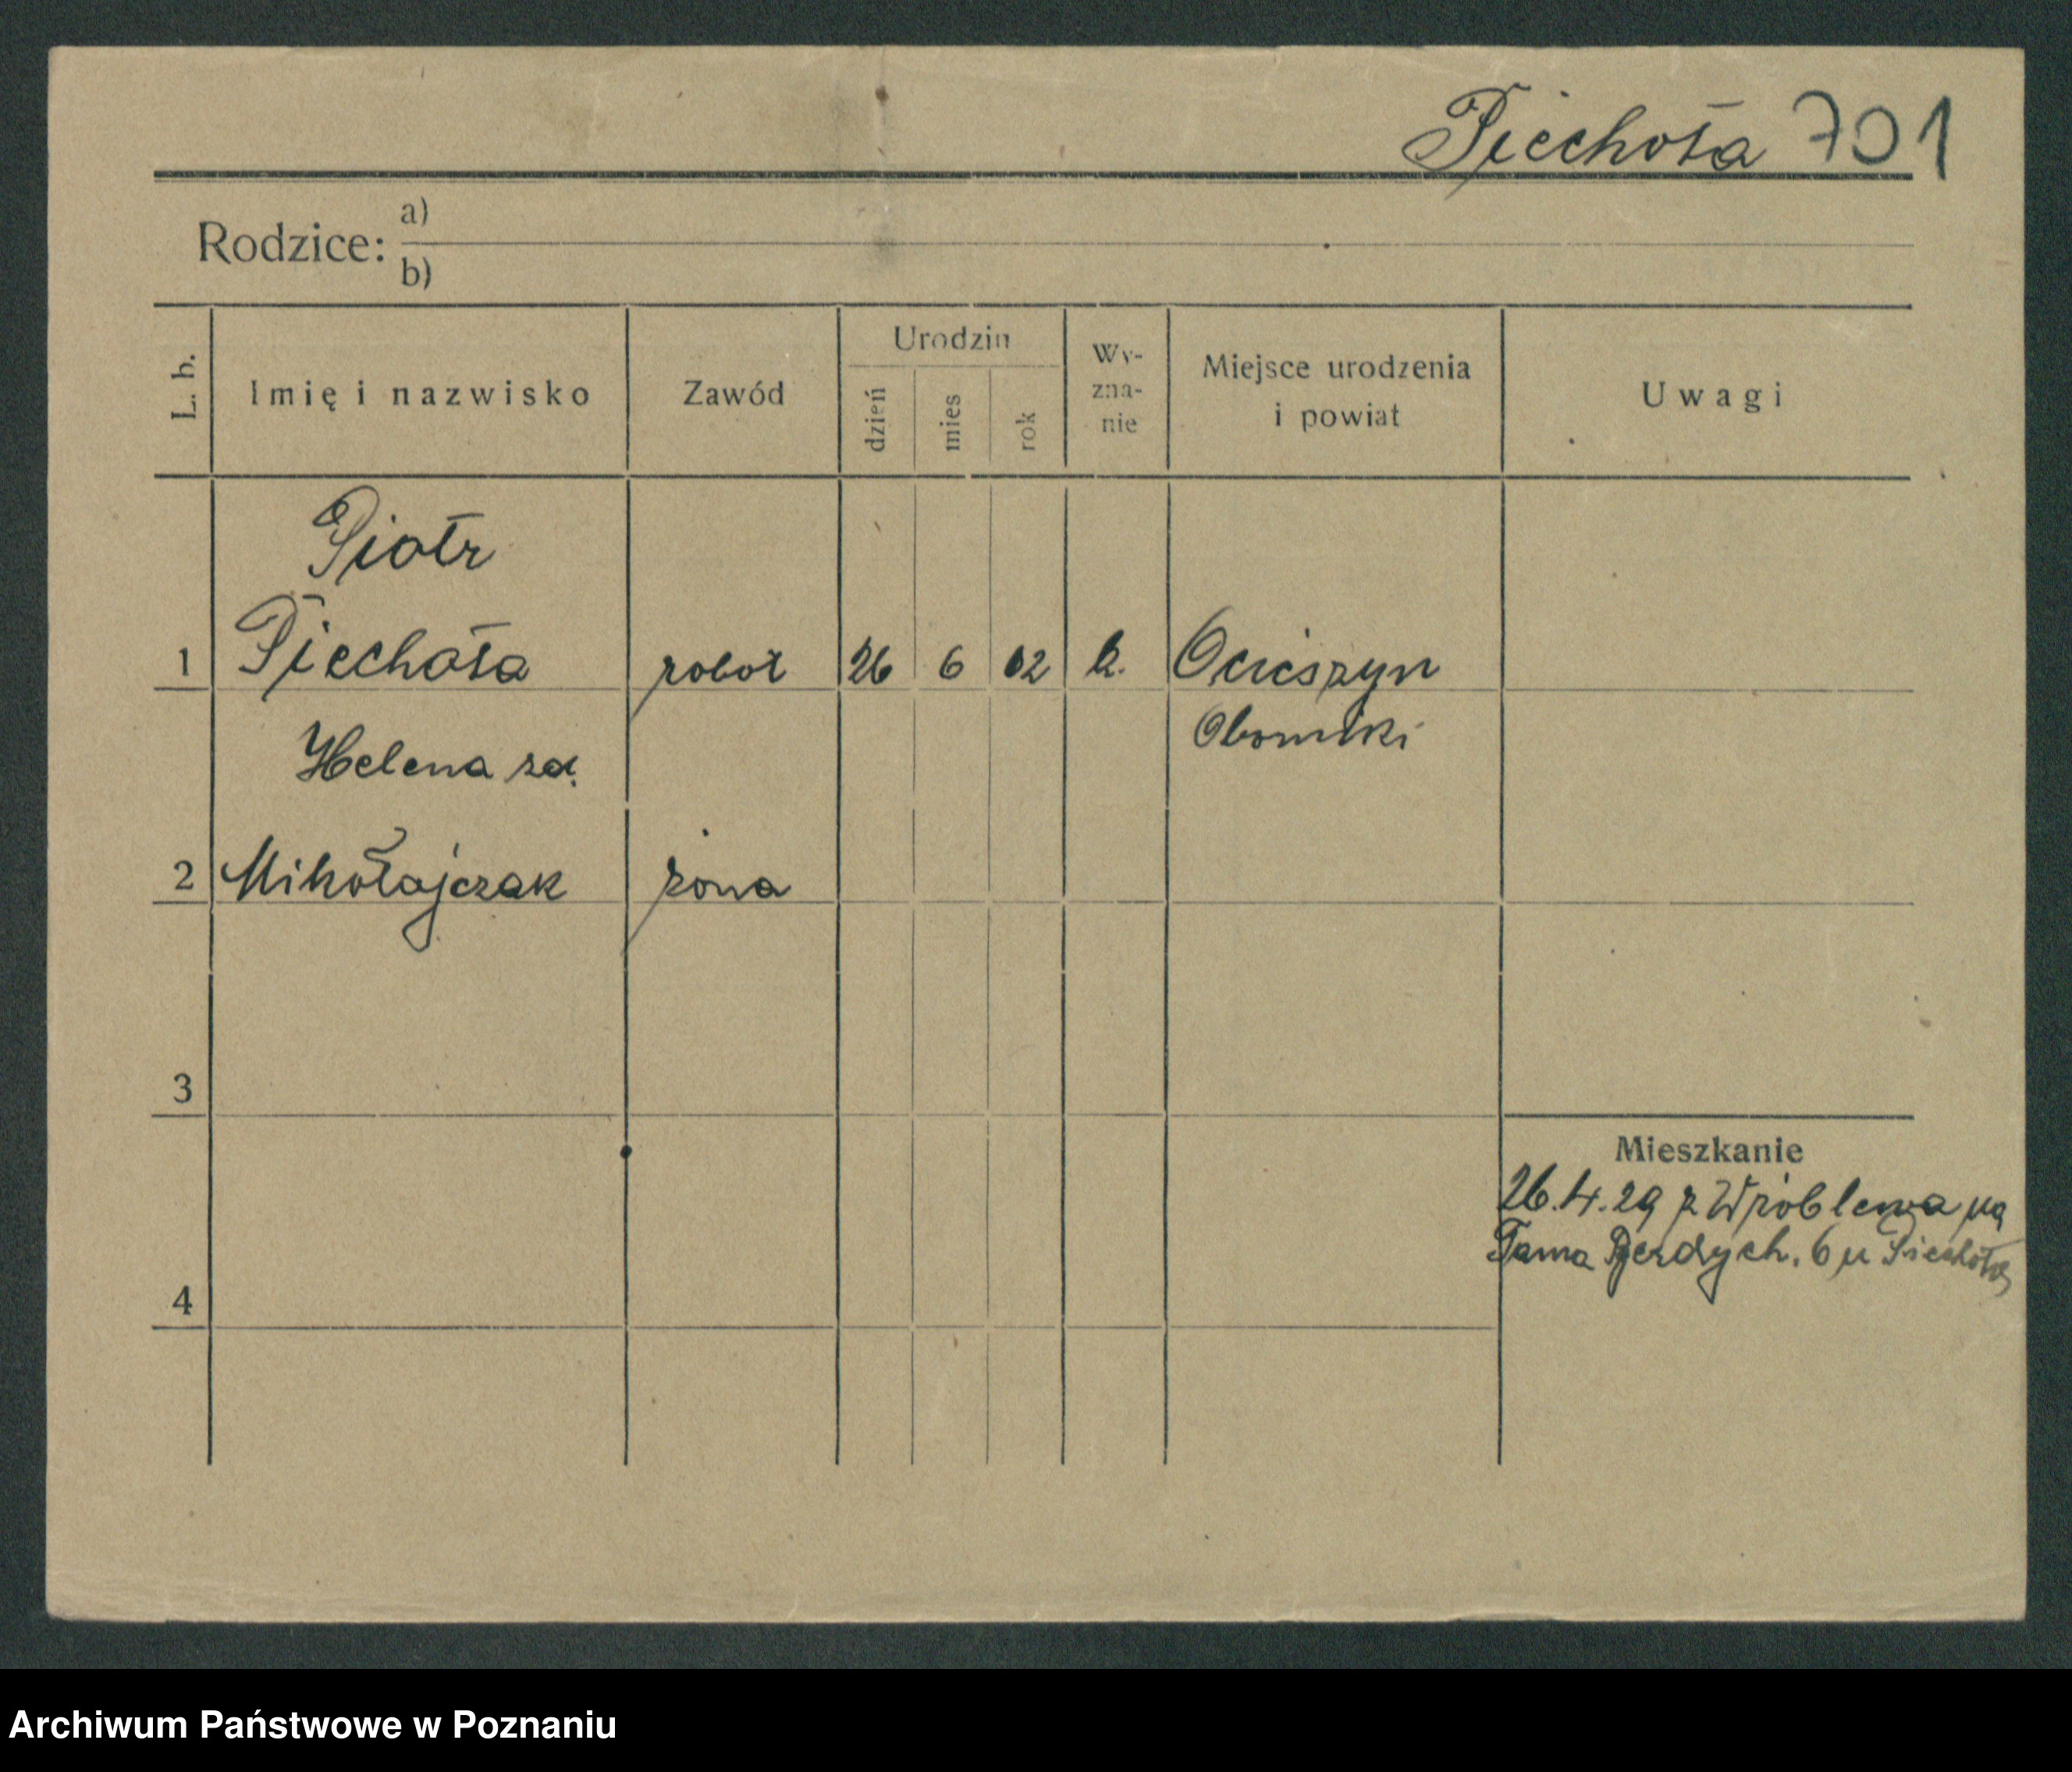 Piechota 701
Rodzice: a)
b)
L. b.
Imię i nazwisko
Zawód
Urodzin
dzień
mies
rok
Wy-
zna-
nie
Miejsce urodzenia
i powiat
Uwagi
Piotr
1 Piechota robot 26 6 02 k. Ocieszyn
Oborniki
Helena zd.
2 Mikołajczak żona
3
Mieszkanie
26.4.29 z Wróblewa na
Tama Gerdych. 6 u Piechoty
4
Archiwum Państwowe w Poznaniu